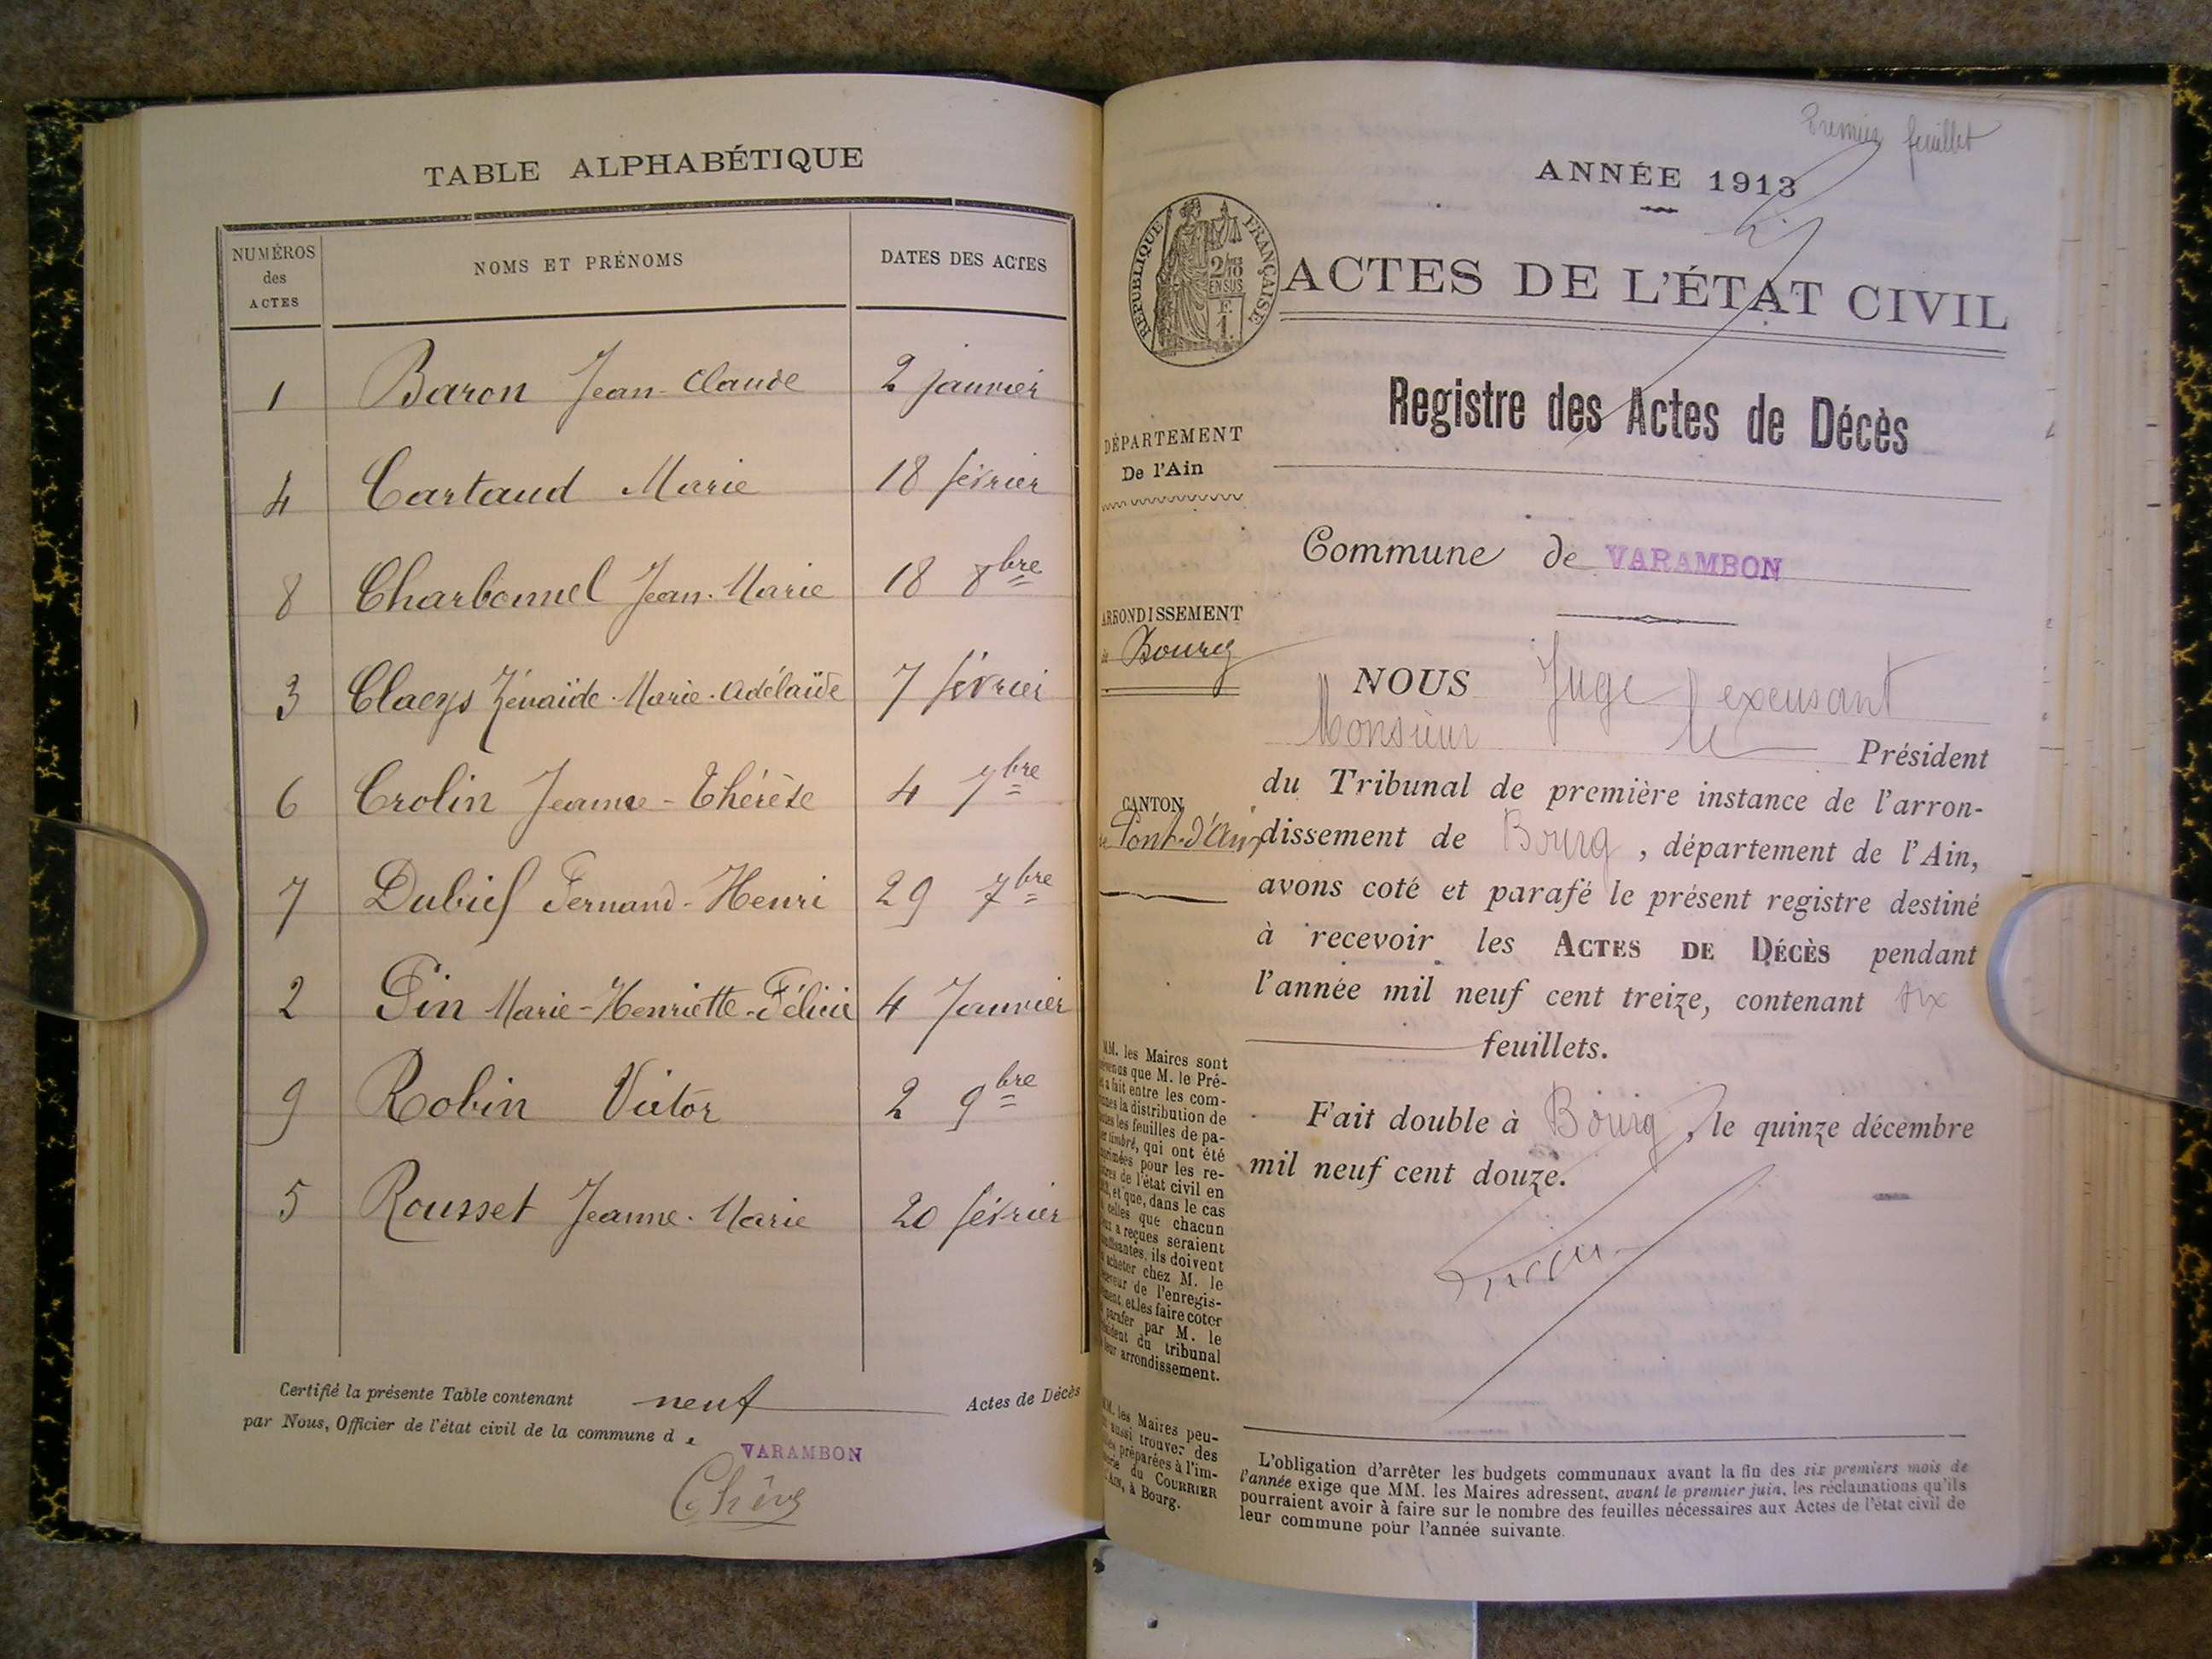 TABLE ALPHABÉTIQUE
NUMÉROS
des
ACTES
NOMS ET PRÉNOMS
DATES DES ACTES
1 Baron Jean-Claude 2 janvier
4 Cartaud Marie 18 février
8 Charbonnel Jean-Marie 18 8bre
3 Claeys Zénaïde-Marie-Adélaïde 7 février
6 Crolin Jeanne-Thérèse 4 7bre
7 Dubief Fernand-Henri 29 7bre
2 Pin Marie-Henriette-Félicie 4 Janvier
9 Robin Victor 2 9bre
5 Rousset Jeanne-Marie 20 février
Certifié la présente Table contenant neuf Actes de Décès
par Nous, Officier de l'état civil de la commune de
VARAMBON
Premier feuillet
ANNÉE 1913
RÉPUBLIQUE FRANÇAISE
2/10
EN SUS
F.
1.
ACTES DE L'ÉTAT CIVIL
Registre des Actes de Décès
DÉPARTEMENT
De l'Ain
Commune de VARAMBON
ARRONDISSEMENT
de Bourg
CANTON
de Pont-d'Ain
NOUS Juge excusant
Monsieur le Président
du Tribunal de première instance de l'arron-
dissement de Bourg, département de l'Ain,
avons coté et parafé le présent registre destiné
à recevoir les ACTES DE DÉCÈS pendant
l'année mil neuf cent treize, contenant six
feuillets.
Fait double à Bourg, le quinze décembre
mil neuf cent douze.
MM. les Maires sont
que M. le Pré-
a fait entre les com-
la distribution de
les feuilles de pa-
timbré, qui ont été
pour les re-
de l'état civil en
et que, dans le cas
celles que chacun
a reçues seraient
ils doivent
acheter chez M. le
de l'enregis-
et les faire coter
parafer par M. le
du tribunal
arrondissement.
MM. les Maires peu-
aussi trouver des
préparées à l'im-
du COURRIER
à Bourg.
L'obligation d'arrêter les budgets communaux avant la fin des six premiers mois de
l'année exige que MM. les Maires adressent, avant le premier juin, les réclamations qu'ils
pourraient avoir à faire sur le nombre des feuilles nécessaires aux Actes de l'état civil de
leur commune pour l'année suivante.